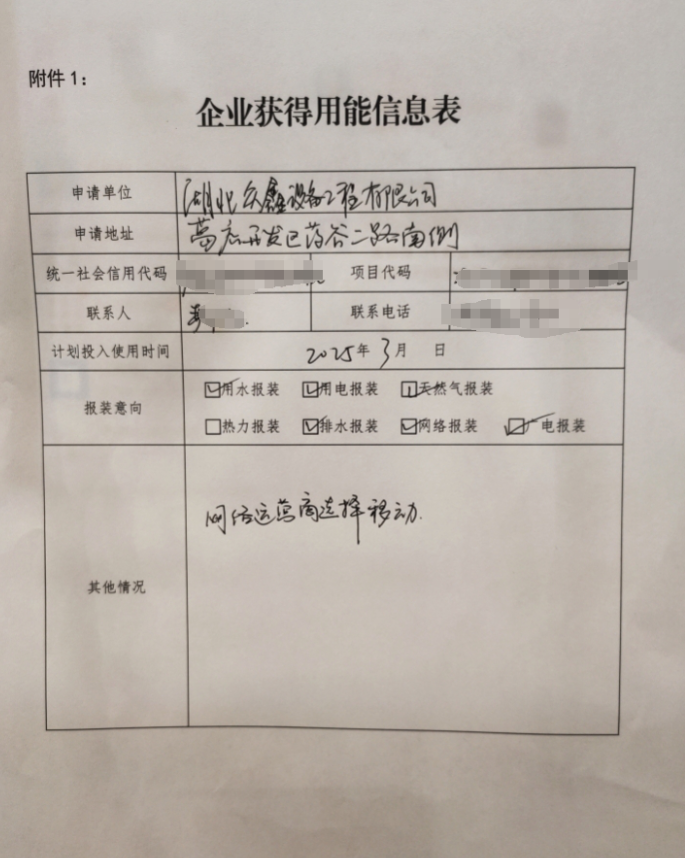 附件1：
企业获得用能信息表
申请单位 湖北众鑫设备工程有限公司
申请地址 葛店开发区药谷二路南侧
统一社会信用代码 项目代码
联系人 联系电话
计划投入使用时间 2025年3月 日
报装意向 ☑用水报装 ☑用电报装 ☑天然气报装
☐热力报装 ☑排水报装 ☑网络报装 ☑广电报装
其他情况 网络运营商选择移动.